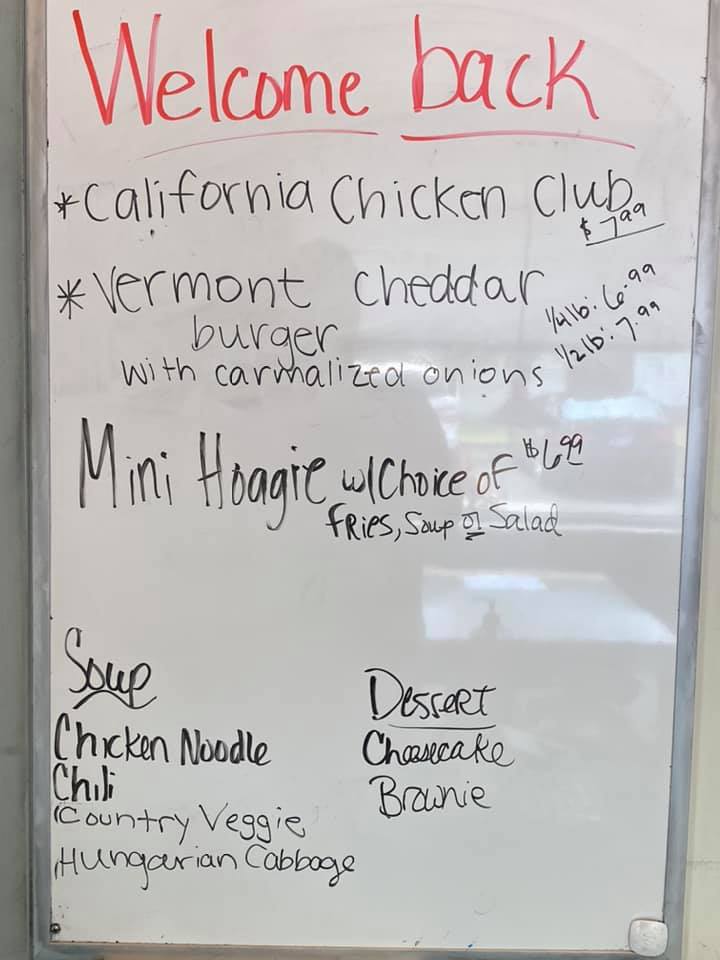 Welcome back
*California Chicken Club
$7.99
*Vermont cheddar
burger
1/4lb: 6.99
1/2lb: 7.99
with carmalized onions
Mini Hoagie w/Choice of $6.99
fries, Soup or Salad
Soup
Chicken Noodle
Chili
Country Veggie
Hungarian Cabbage
Dessert
Cheesecake
Brownie